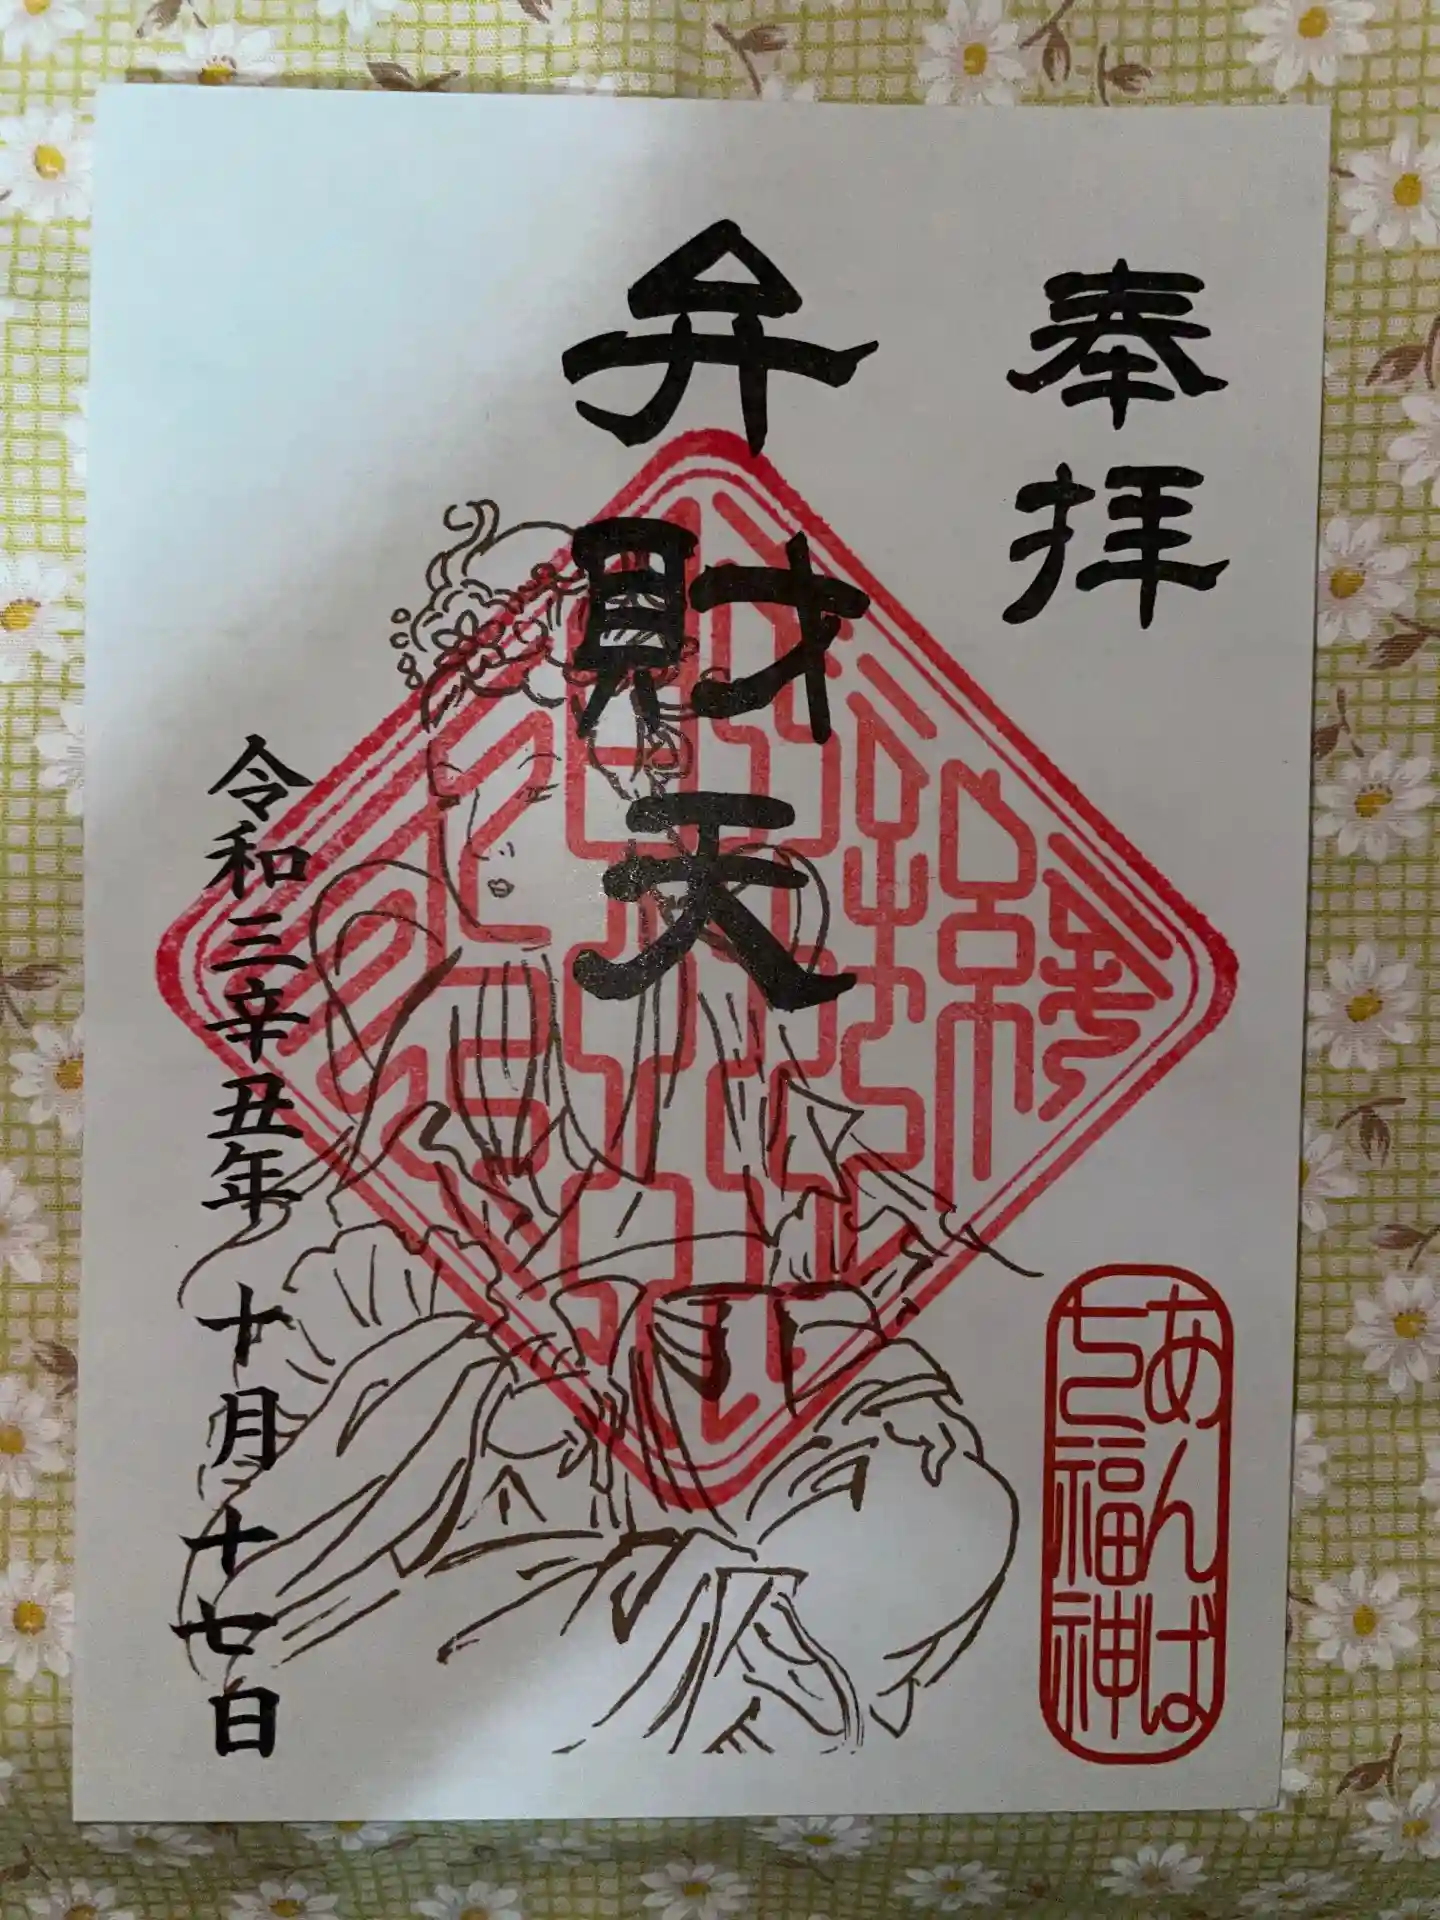 奉拝
弁財天
令和三辛丑年 十月十七日
あんば
七福神